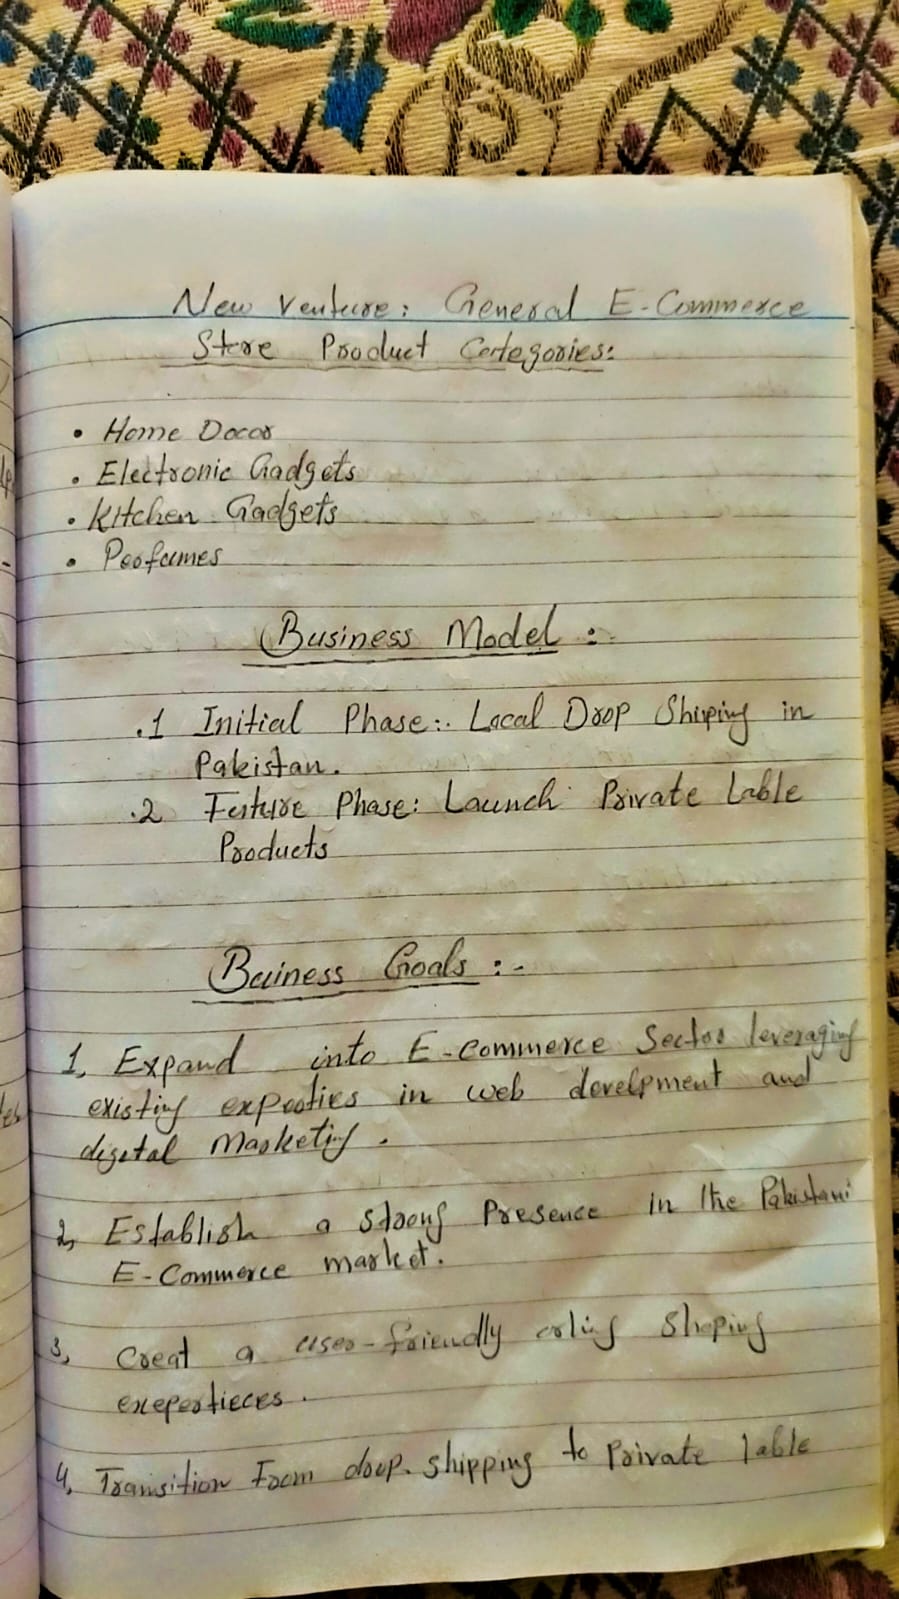 New Venture: General E-Commerce
Store Product Categories:
• Home Docor
• Electronic Gadgets
• Kitchen Gadgets
• Perfumes
Business Model :
.1 Initial Phase:. Local Drop Shiping in
Pakistan.
.2 Future Phase: Launch Private Lable
Products
Buiness Goals :-
1, Expand into E-commerce Sector leveraging
existing experties in web develpment and
digital Marketing.
2, Establish a strong Presence in the Pakistani
E-Commerce market.
3, Creat a user-friendly shoping
4, Transition From drop-shipping to Private lable